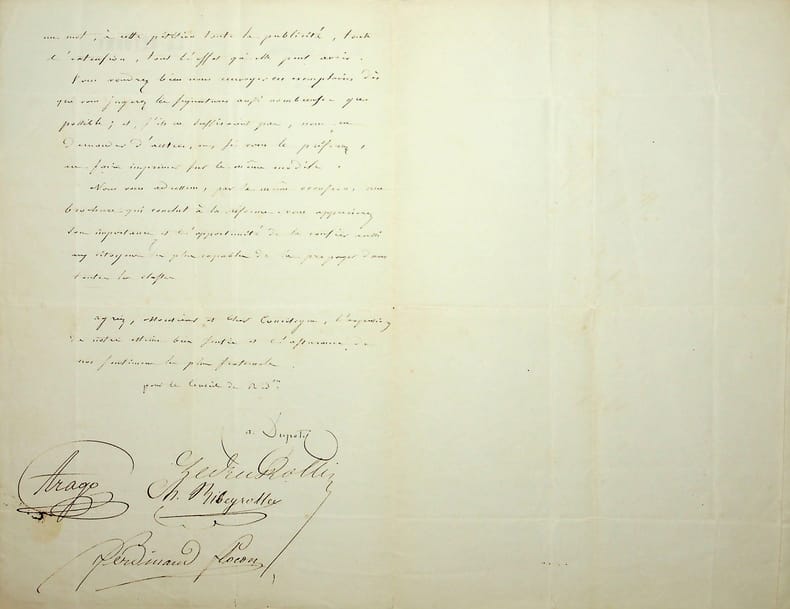 un mot, à cette pétition toute la publicité, toute
l'extension, tout l'effet qu'elle peut avoir.
Vous voudrez bien nous renvoyer ces exemplaires dès
que vous jugerez les signatures aussi nombreuses que
possible; et, s'ils ne suffisaient pas, nous en
demander d'autres, ou, si vous le préférez,
en faire imprimer sur le même modèle.
Nous vous adressons, par la même occasion, une
brochure qui conclut à la réforme. vous apprécierez
son importance et l'opportunité de la confier aussi
aux citoyens les plus capables de la propager dans
toutes les classes
agréez, Monsieur et cher Concitoyen, l'expression
de notre estime bien sentie et l'assurance de
nos sentiments les plus fraternels.
pour le Conseil de
a. Dupoty
Ledru Rollin
Arago
Ch. Ribeyrolles
Ferdinand Flocon